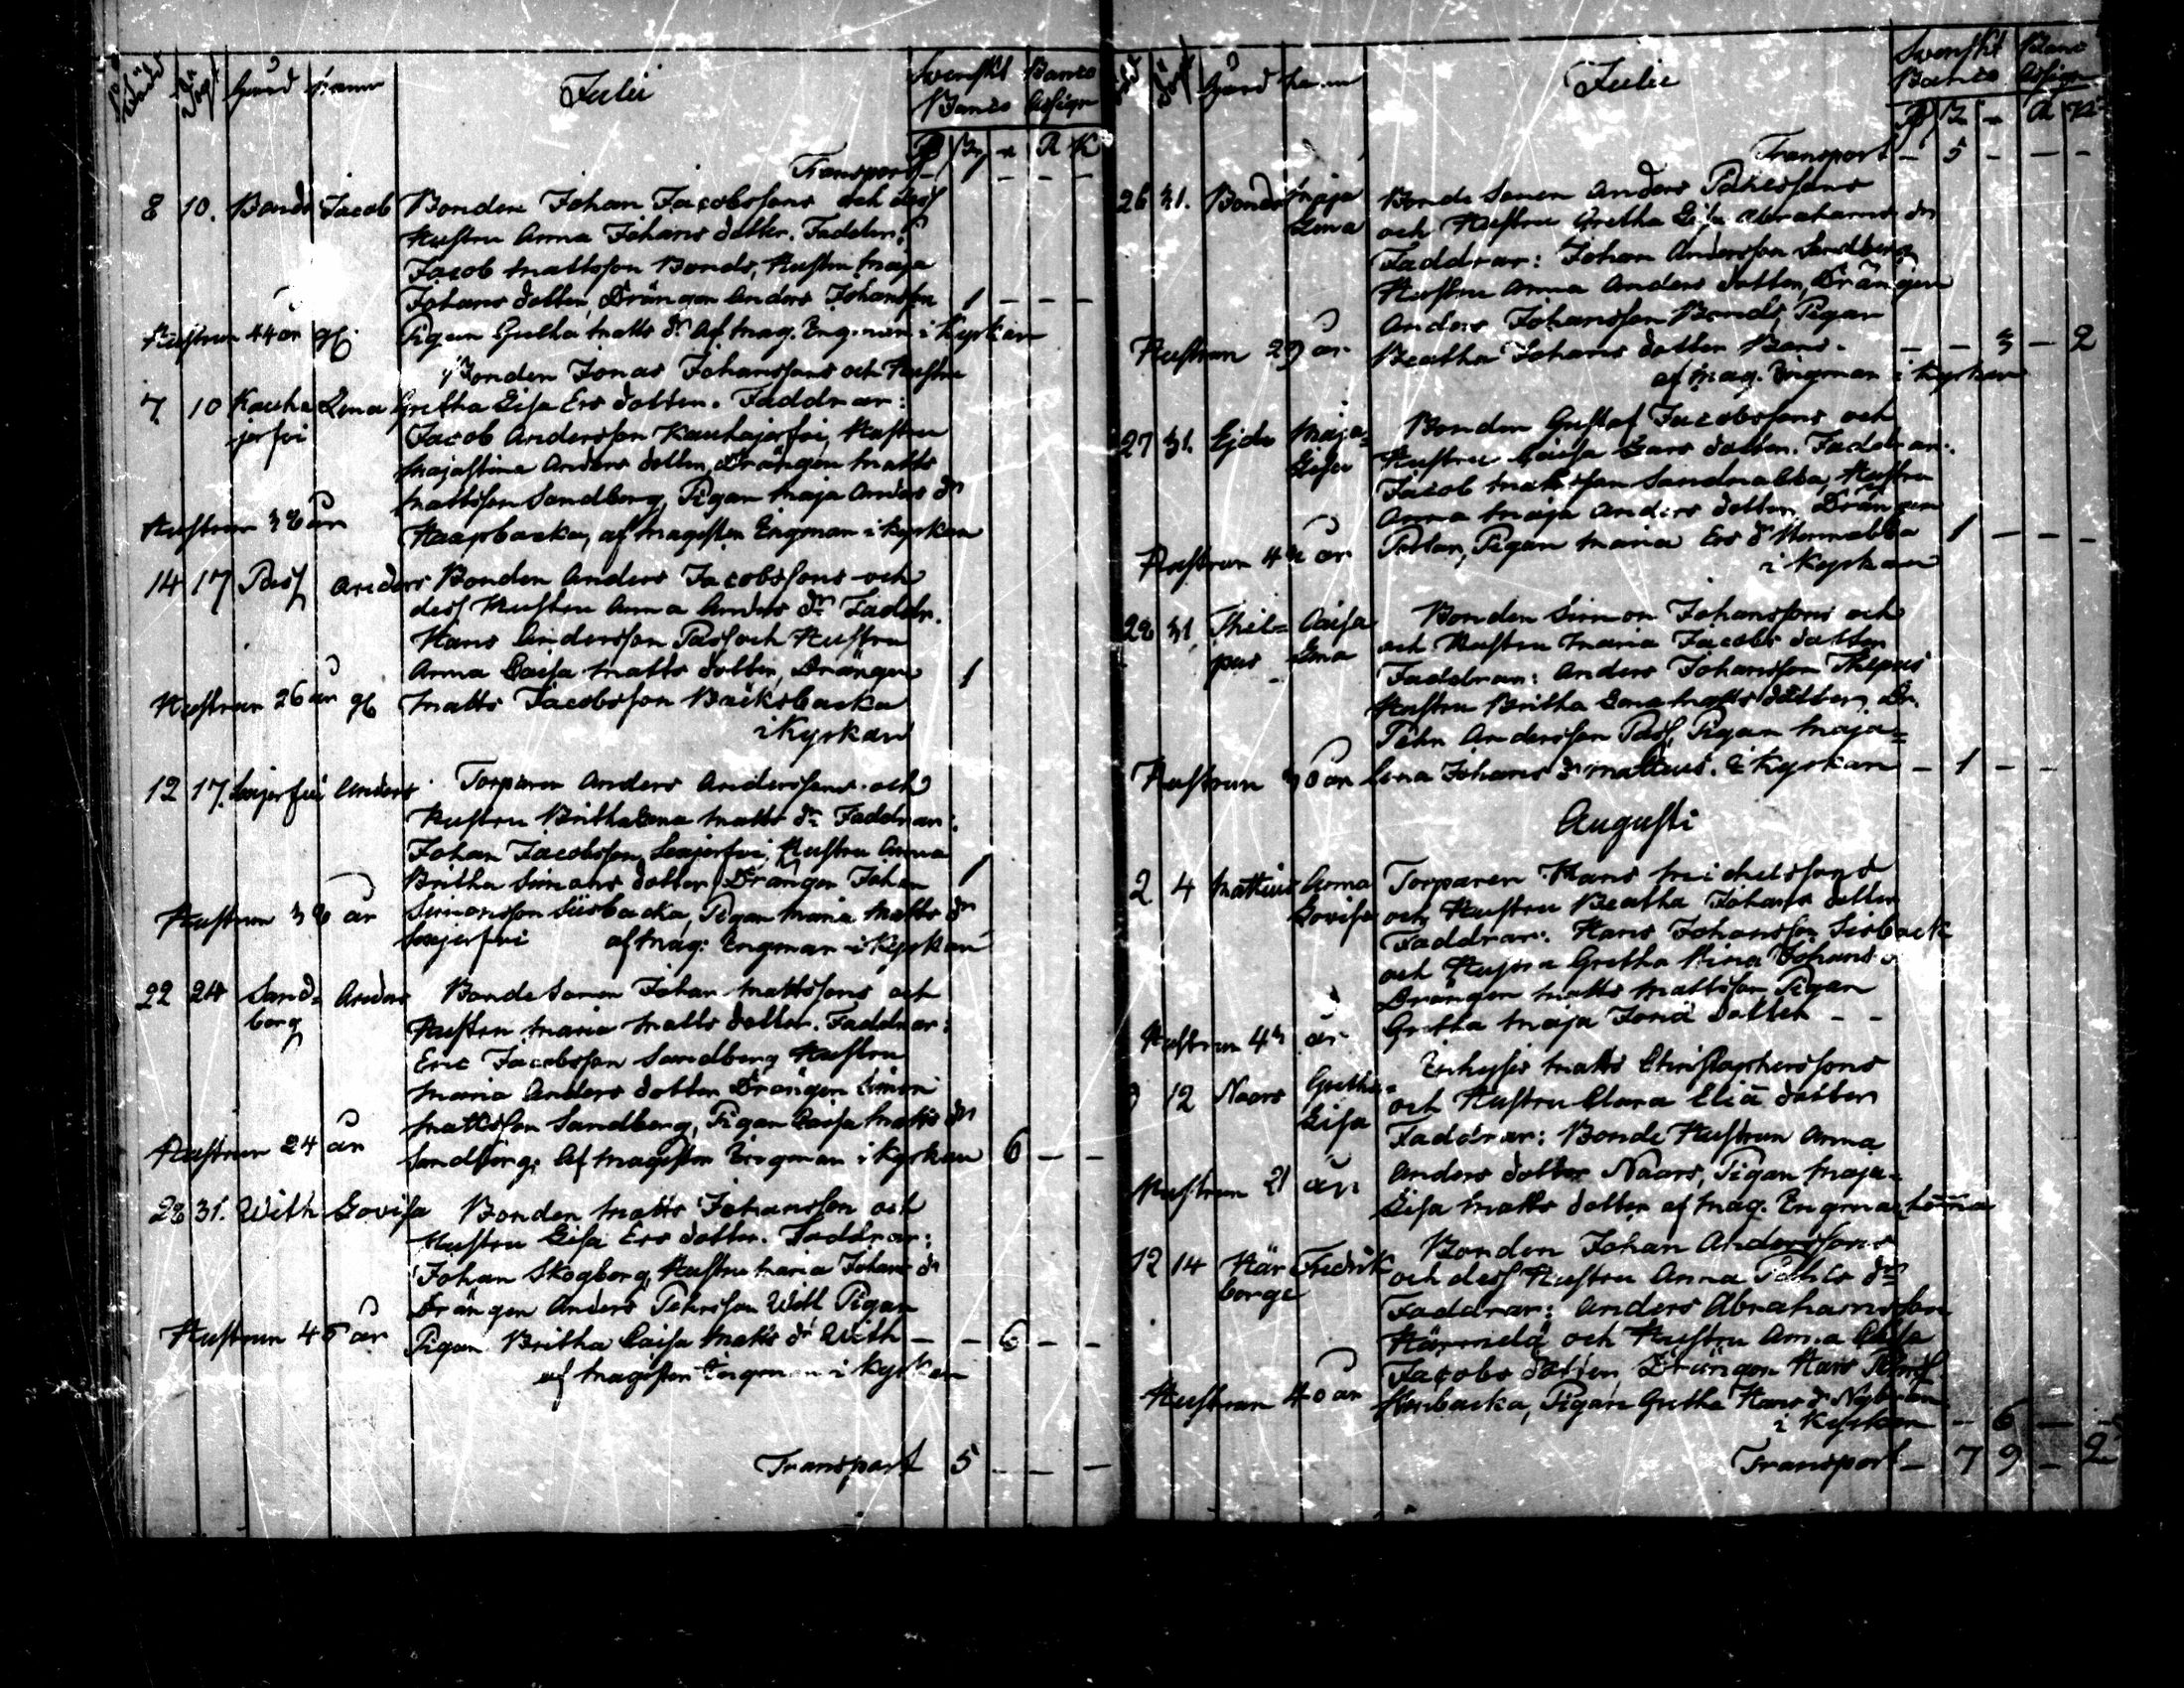 Född Döpt Gård Namn Julii Svenskt Banco Banco Assign
R K
Transport - 1 - - -
8 10. Bonds Jacob Bonden Johan Jacobssons och dess
Hustru Anna Johans dotter. Faddrar:
Jacob Mattsson Bonds, Hustru Maja
Johans dotter, Drängen Anders Johansson 1 - - -
Hustrun 44 år Pigan Gretha Matts dr Af Mag. Engman i Kyrkan
Bonden Jonas Johanssons och Hustru
7 10 Kauhajerfvi Lena Gretha Lisa Ers dotter. Faddrar:
Jacob Andersson Kauhajerfvi, Hustru
Majastina Anders dotter, Drängen Matts
Mattsson Sandberg, Pigan Maja Anders dr
Hustrun 38 år Haapbacka, af Magister Engman i Kyrkan
14 17 Pass Anders Bonden Anders Jacobssons och
dess Hustru Anna Anders dr Faddr.
Hans Andersson Pass och Hustru
Anna Caisa Matts dotter, Drängen 1
Hustrun 26 år Matts Jacobsson Backsbacka
i Kyrkan
12 17. Anders Torparen Anders Anderssons och
Hustru Britha Lena Matts dr Faddrar:
Johan Jacobsson, Hustru Anna
Britha Simons dotter, Drängen Johan 1
Hustrun 38 år Simonsson Siisbacka, Pigan Maria Matts dr
af Mag: Engman i Kyrkan
22 24 Sand= berg Anders Bonde Sonen Johan Mattssons och
Hustru Maria Matts dotter. Faddrar:
Eric Jacobsson Sandberg Hustru
Maria Anders dotter Drängen Simon
Mattsson Sandberg, Pigan Caisa Matts dr
Hustrun 24 år Sandberg: Af Magister Engman i Kyrkan 6 - -
28 31. With Lovisa Bonden Matts Johansson och
Hustru Lisa Ers dotter. Faddrar:
Johan Skogberg, Hustru Maria Johans dr
Drängen Anders Pehrsson With Pigan
Hustrun 45 år Pigan Britha Caisa Matts dr With - - 6 - -
af Magister Engman i Kyrkan
Transport 5 - - -
Gård Namn Julii Svenskt Banco Banco Assign
Transport - 5 - - -
26 31. Bonds Maja Lena Bonde Sonen Anders Pehrssons
och Hustru Gretha Lisa Abrahams dr
Faddrar: Johan Andersson Sandberg
Hustru Anna Anders dotter, Drängen
Anders Johansson Bonds, Pigan
Hustrun 29 år Beatha Johans dotter Bons. - - 3 - 2
af Mag. Engman i Kyrkan
27 31. Ejdo Maja= Lisa Bonden Gustaf Jacobssons och
Hustru Caisa Lars dotter. Faddrar:
Jacob Mattsson Sandnabba, Hustru
Anna Maja Anders dotter, Drängen
Hustrun år Pigan Maria Ers dr 1 - - -
i Kyrkan
28 31. Thil= pus Caisa Lena Bonden Simon Johanssons och
och Hustru Maria Jacobs dotter
Faddrar: Anders Johansson
Hustru Britha Lena Matts dotter, Dr.
Pehr Andersson Pass, Pigan Maja=
Hustrun 30 år Lena Johans dr Mattius. i Kyrkan - 1 - -
Augusti
2 4 Mattius Anna Lovisa Torparen Hans Michelssons
och Hustru Beatha Johans dotter
Faddrar: Hans Johansson Sisback
och Hustru Gretha Stina Johans dr
Drängen Matts Mattsson, Pigan
Hustrun 43 år Gretha Maja Jonä dotter - -
Inhyses Matts Christophersons
9 12 Naars Gretha= Lisa och Hustru Clara Eliä dotter
Faddrar: Bonde Hustrun Anna
Hustrun 21 år Anders dotter Naars, Pigan Maja=
Lisa Matts dotter af Mag. Engman hemma
12 14 Här borge Fredrik Bonden Johan Anderssons
och dess Hustru Anna Pehrs dr
Faddrar: Anders Abrahamsson
och Hustru Anna Caisa
Jacobs dotter, Drängen Hans
Hustrun 40 år Pigan Gretha Hans dr Nybrän
i Kyrkan - 6 - -
Transport - 7 9 - 2